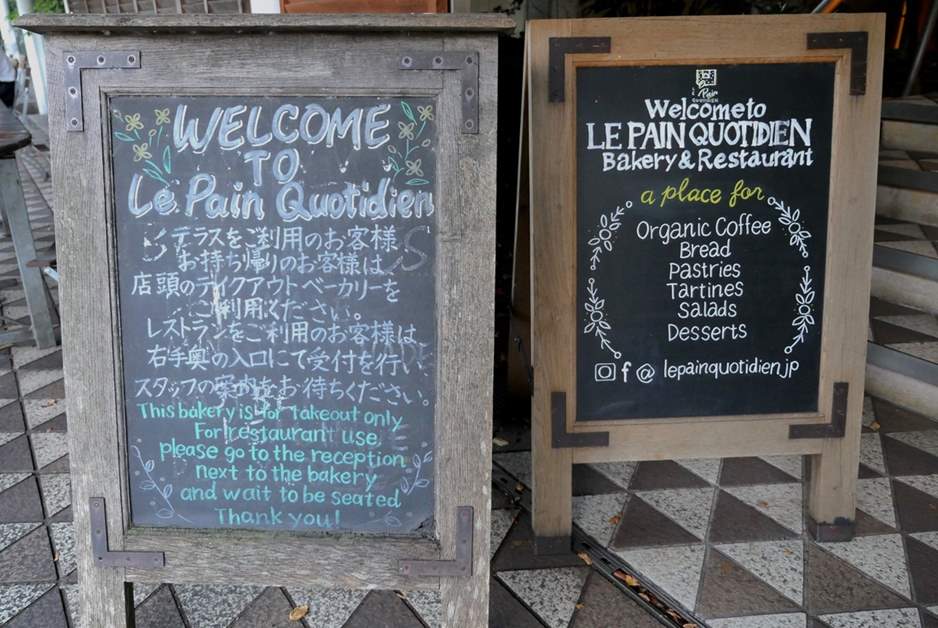 WELCOME
TO
Le Pain Quotidien
テラスをご利用のお客様
お持ち帰りのお客様は、
店頭のテイクアウトベーカリーを
ご利用ください。
レストランをご利用のお客様は
右手奥の入口にて受付を行い、
スタッフの案内をお待ちください。
This bakery is for takeout only
For restaurant use,
please go to the reception
next to the bakery
and wait to be seated
Thank you!
Le Pain
QUOTIDIEN
Welcome to
LE PAIN QUOTIDIEN
Bakery & Restaurant
a place for
Organic Coffee
Bread
Pastries
Tartines
Salads
Desserts
f @ lepainquotidienjp